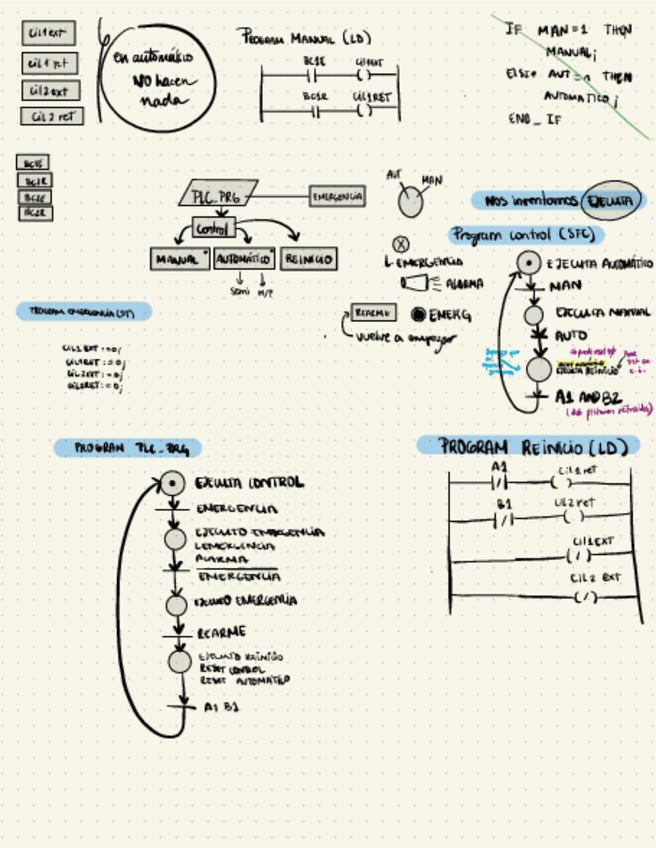 Cil1ext
Cil1 ret
Cil2ext
Cil2 ret
en automático
NO hacen
nada
PROGRAM MANUAL (LD)
BC1E
Cil1EXT
BC1R
Cil1RET
IF MAN=1 THEN
MANUAL;
THEN
AUTOMATICO;
END_IF
BC1E
BC1R
BC2E
BC2R
PLC_PRG
EMERGENCIA
Control
MANUAL
AUTOMÁTICO
REINICIO
Semi
AUT
MAN
L.EMERGENCIA
ALARMA
REARME
EMERG
vuelve a empezar
Nos inventamos EJECUTA
Program control (SFC)
EJECUTA AUTOMÁTICO
MAN
EJECUTA MANUAL
AUTO
EJECUTA REINICIO
A1 AND B2
PROGRAM EMERGENCIA (ST)
Cil1EXT :=0;
Cil1RET :=0;
Cil2EXT :=0;
Cil2RET :=0;
PROGRAM PLC_PRG
EJECUTA CONTROL
EMERGENCIA
EJECUTO EMERGENCIA
L.EMERGENCIA
ALARMA
EMERGENCIA
EJECUTO EMERGENCIA
REARME
EJECUTO REINICIO
RESET CONTROL
RESET AUTOMATICO
A1 B1
PROGRAM REINICIO (LD)
A1
Cil1ret
B1
Cil2ret
Cil1EXT
Cil2 ext